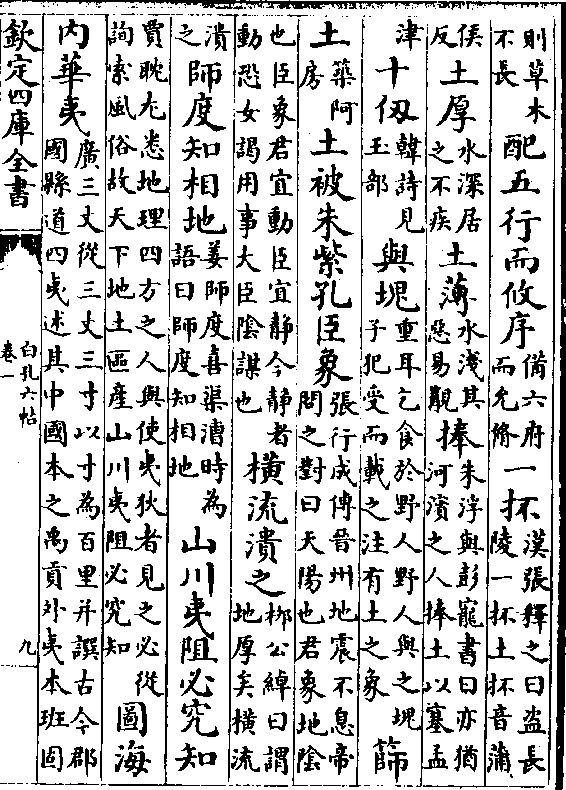 則草木不長配五行而攸序備六府而允脩一抔漢張釋之曰盜長陵一抔土抔音蒲
侯反土厚水深居之不疾土薄水淺其惡易覯捧朱浮與彭寵書曰亦猶河濱之人捧土以塞孟
津十仭韓詩見玉部與塊重耳乞食於野人野人與之塊子犯受而載之注有土之象篩
土築阿房土被朱紫孔臣象張行成傳晉州地震不息帝問之對曰天陽也君象地陰
也臣象君宜動臣宜静今静者動恐女謁用事大臣陰謀也橫流潰之栁公綽曰謂地厚矣橫流
潰之師度知相地姜師度喜渠漕時為語曰師度知相地山川夷阻必究知
賈耽尤悉地理四方之人與使夷狄者見之必從詢索風俗故天下地土區產山川夷阻必究知圖海
内華夷廣三丈從三丈三寸以寸為百里并譔古今郡國縣道四夷述其中國本之禹貢外夷本班固
欽定四庫全書
白孔六帖
卷一
九